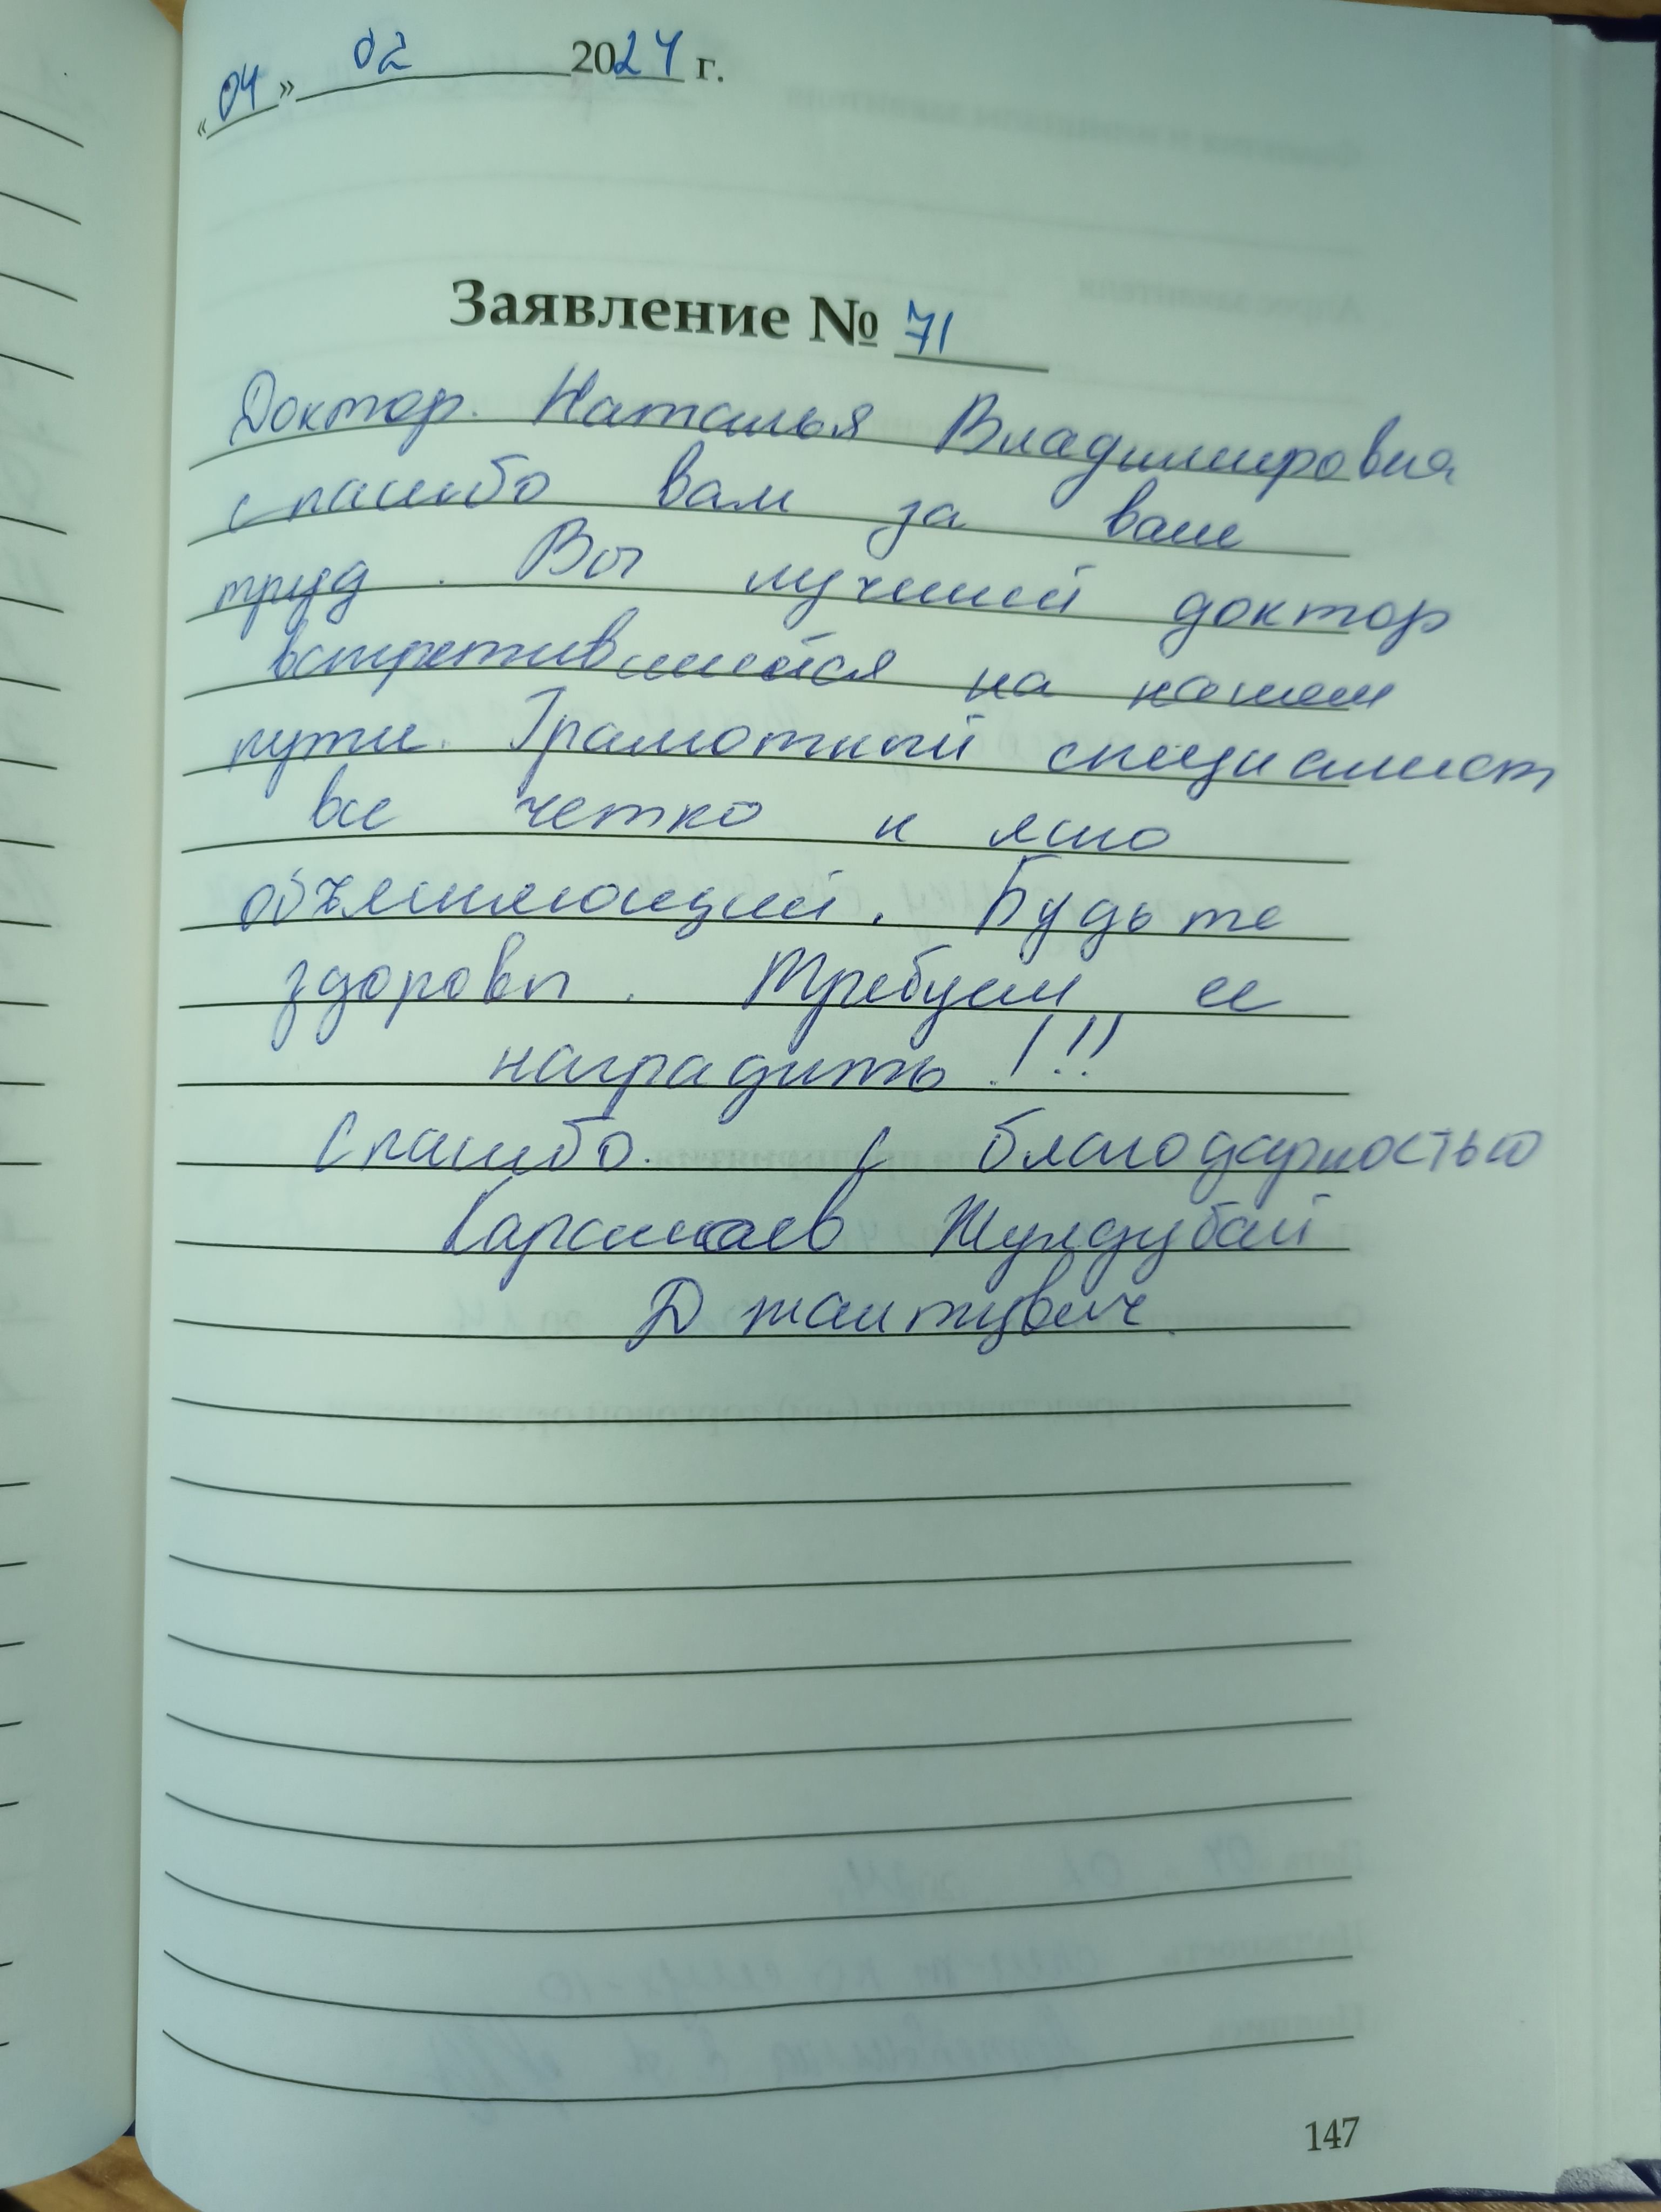 «04» 02 2024 г.
Заявление № 71
Доктор. Наталья Владимировна
спасибо вам за ваш
труд. Вы лучший доктор
встретившийся на нашем
пути. Грамотный специалист
все четко и ясно
объясняющий. Будьте
здоровы. Требуем ее
наградить!!!
Спасибо. С благодарностью
Жулдубай
147